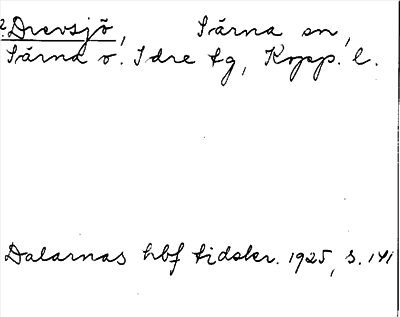 ?Drevsjö, Särna sn,
Särna o. Idre tg, Kopp. l.
Dalarnas hbf tidskr. 1925, s. 141